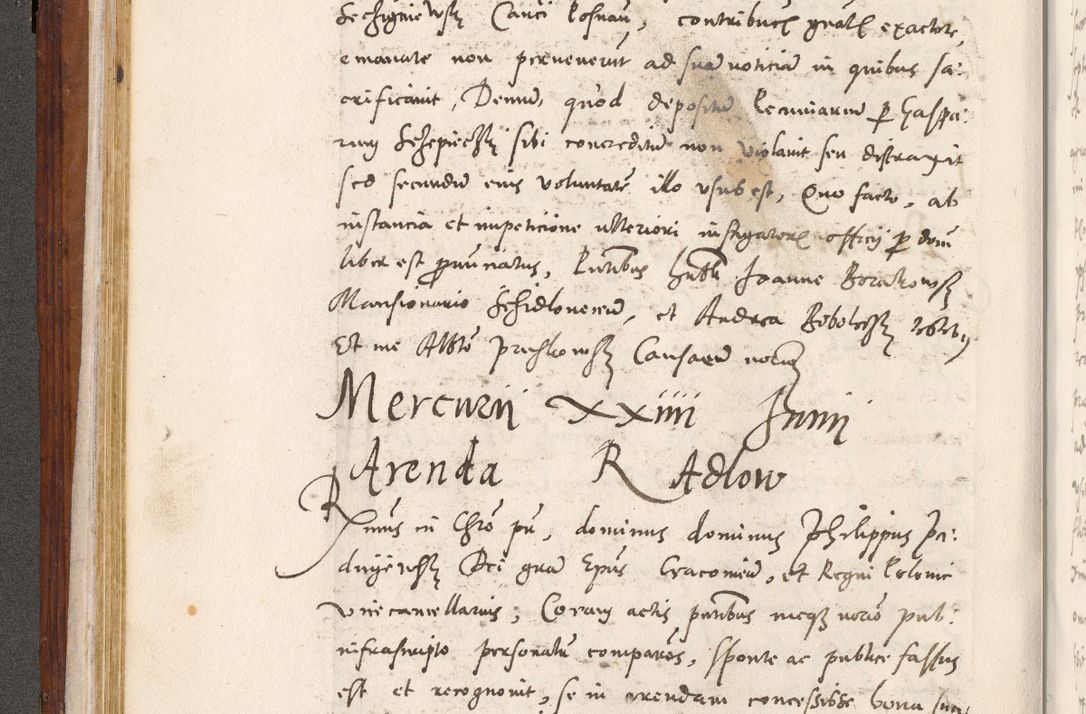 Sczigniewsky Canci Posnan, contribuces gnales exactore,
emanate non pervenerunt ad suam noticiam in quibus sa:
crificavit, Demum, quod depositum pecuniarum per Gaspa:
rum Sczepieczsky sibi concreditum non violavit seu distraxit
sed secundum eius voluntatem illo usus est, Quo facto, ab
instancia et impeticione ulteriori instigatoris officij per dominum
liber est pronunciatus, Pntibus hnblibus Joanne Borakowsky
Mansionario Schidloviensi, et Andrea Bobolczsky testibus
Et me Albto Pruskowsky Causarum notario
Mercurij XXIIII Junij
Arenda RAdlow
Rmus in Chro pr, dominus dominus Philippus Pa:
dnyewsky Dei gra Epus Cracovien, et Regni Polonie
Vicecancellarius, Coram actis pntibus meque notario pub:
infrascripto personalr comparens, sponte ac publice fassus
est et recognovit, se in arendam concessisse bona sua